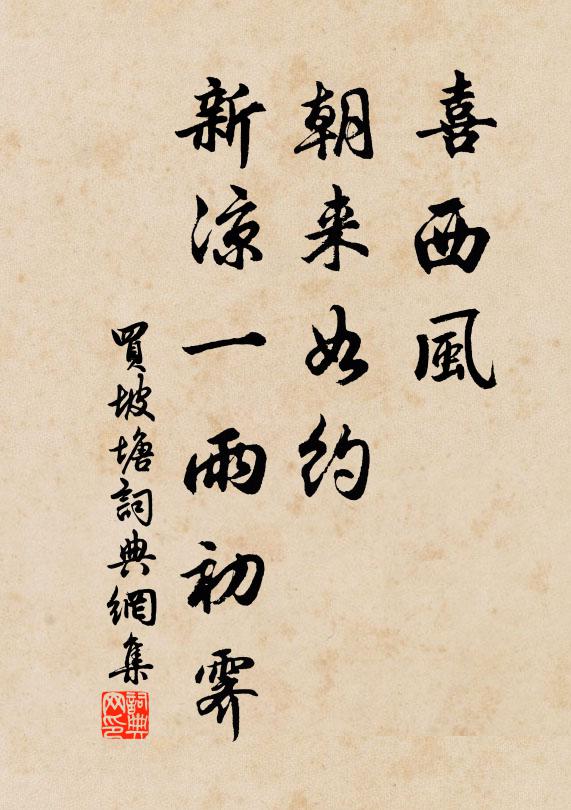 喜西風
朝来如約
新涼一雨初霽
買坡塘詞典網集
詞典
网印